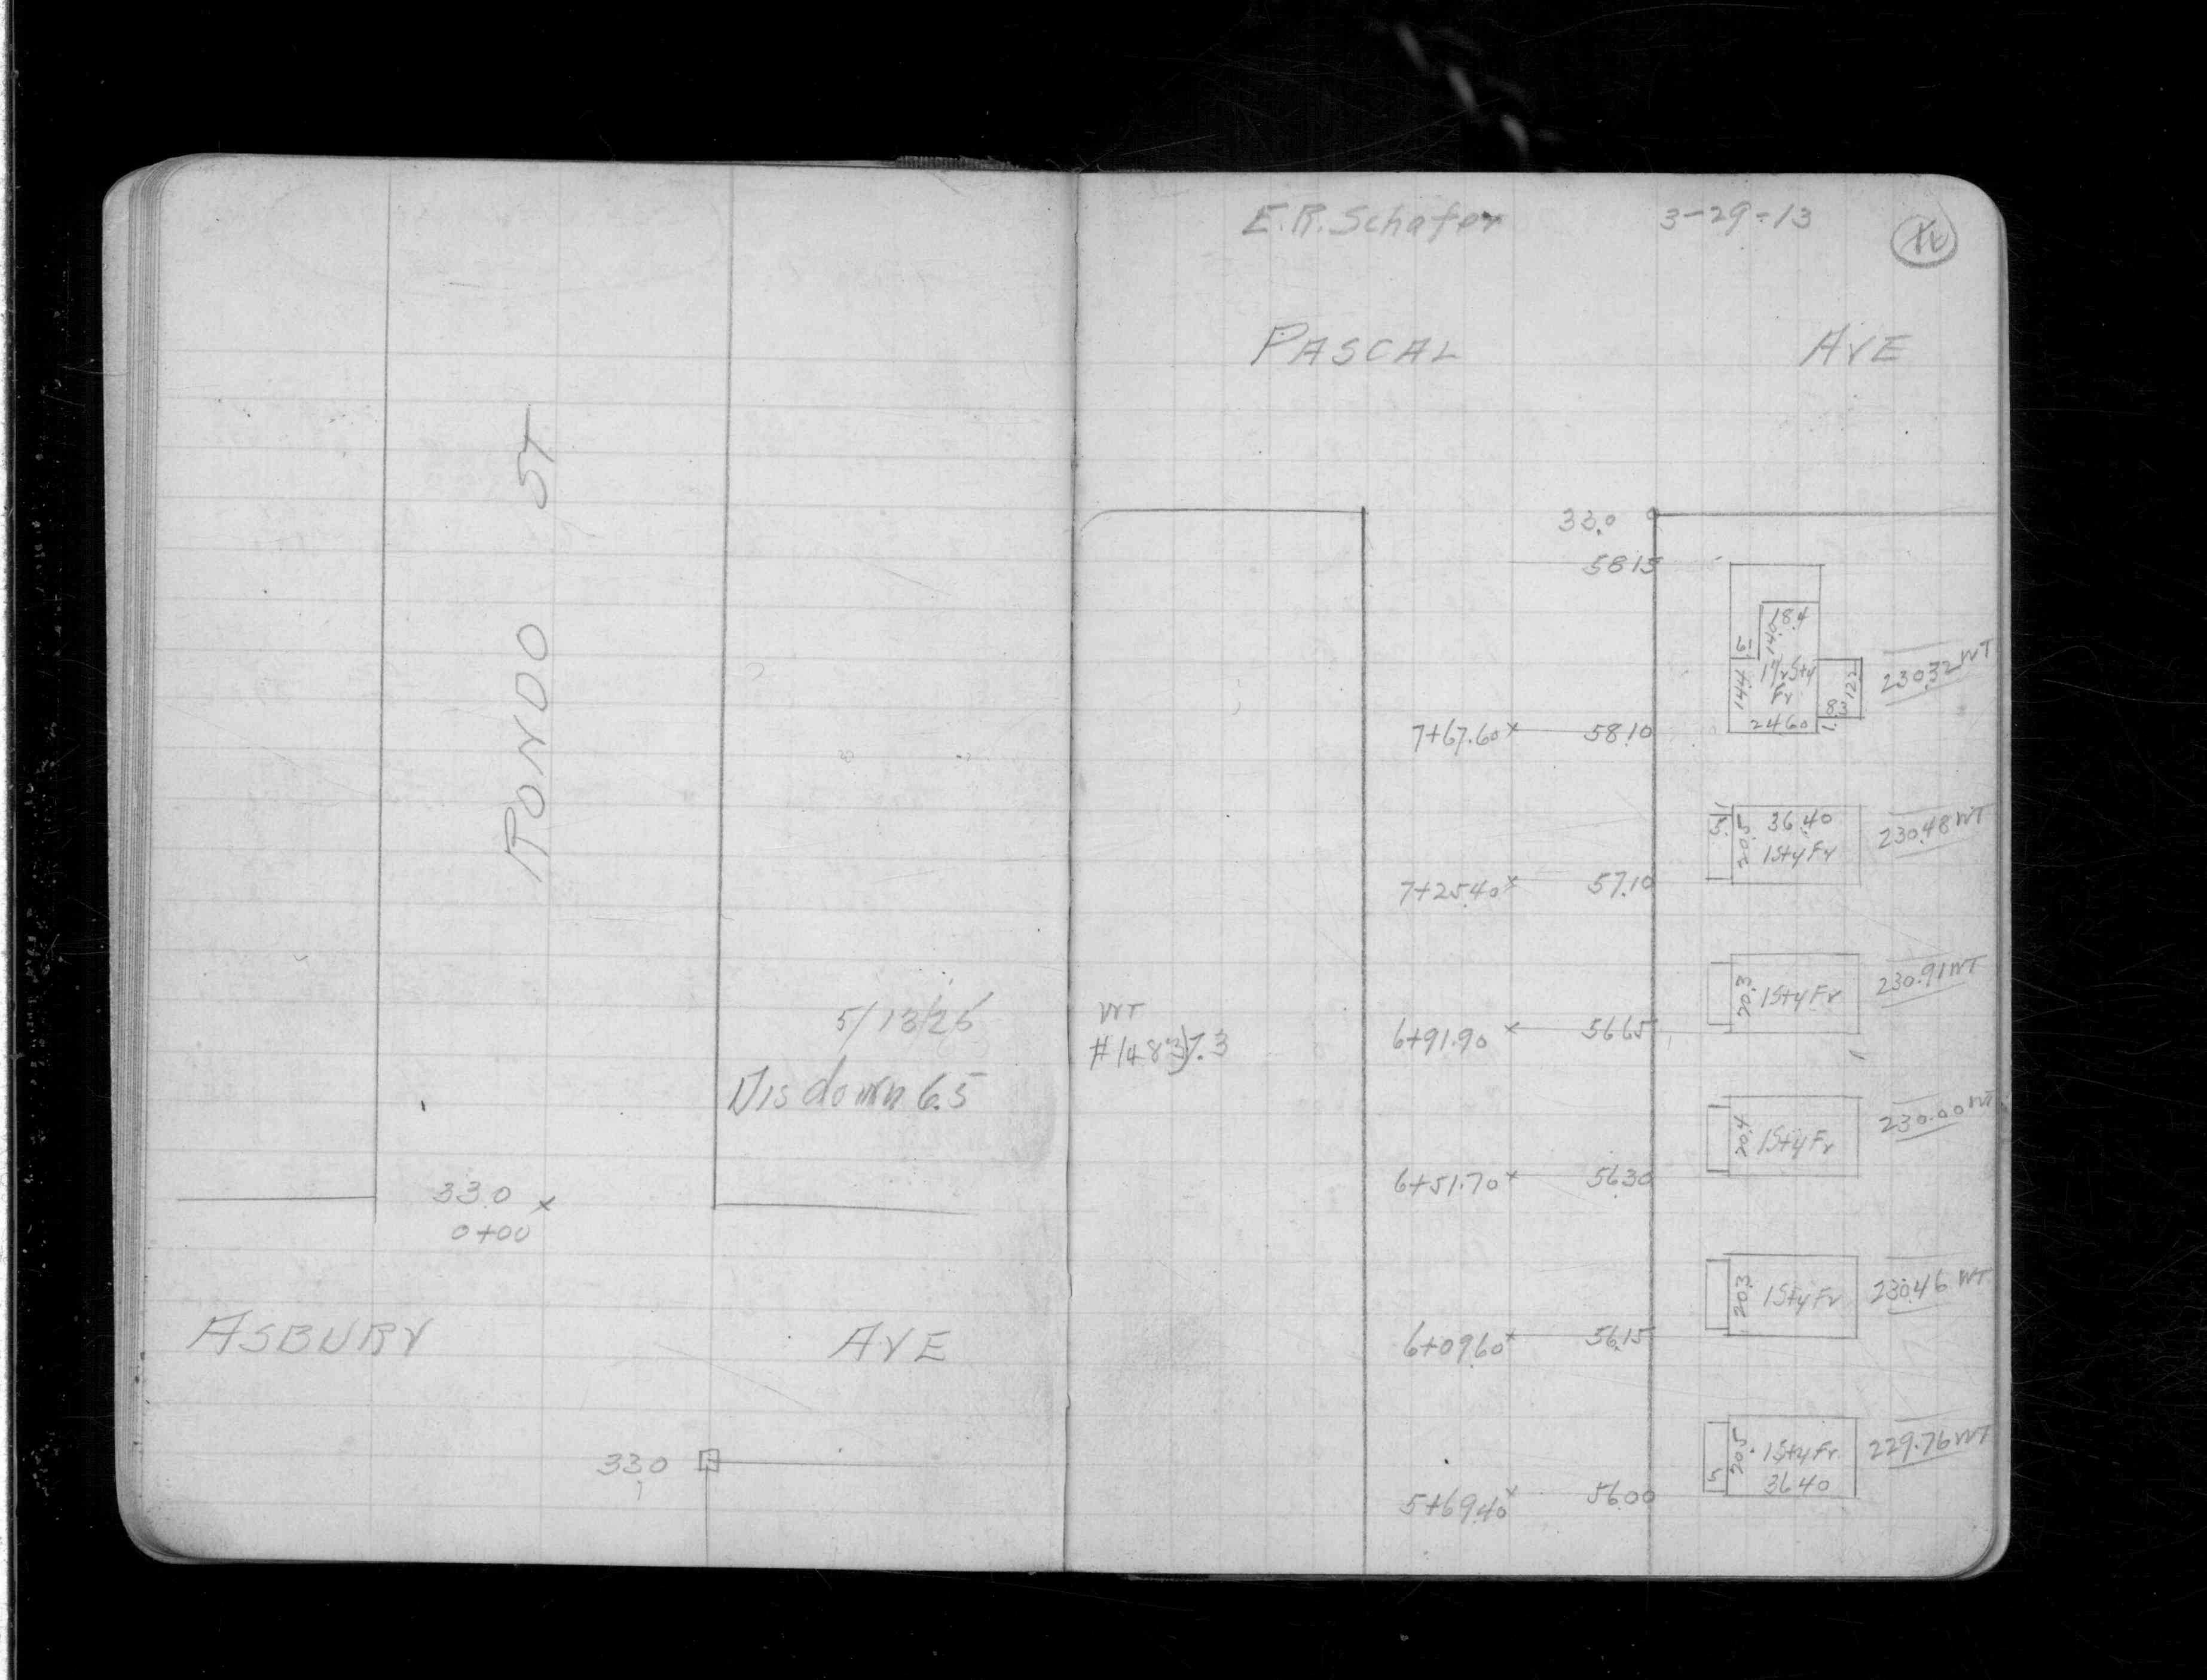 RONDO ST
5/13/26
Dis down 6.5
33.0
0+00
ASBURY AVE
33.0
E.R. Schafer 3-29-13
PASCAL AVE
33.0
58.15
18.4
14.0
14.4
1 1/2 Sty
Fr
12.2
8.3
24.60
230.32 WT
7+67.60 58.10
36.40
20.5
1 Sty Fr
230.48 WT
7+25.40 57.10
20.3 1 Sty Fr 230.91 WT
WT
6+91.90 56.65
20.4 1 Sty Fr 230.00 WT
6+51.70 56.30
20.3 1 Sty Fr 230.46 WT
6+09.60 56.15
5 20.5 1 Sty Fr 229.76 WT
36.40
5+69.40 56.00